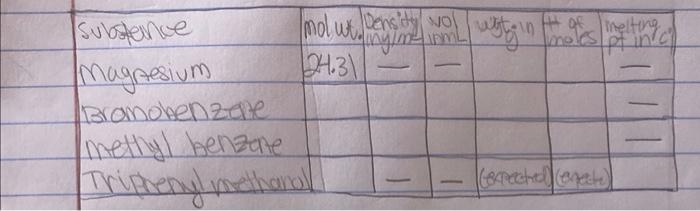 Substance mol wt. Density in g/mL vol in mL wgt in g # of moles melting pt in °C
Magnesium 24.31 — — —
Bromobenzene —
methyl benzene —
Triphenyl methanol — — (expected) (expecte)